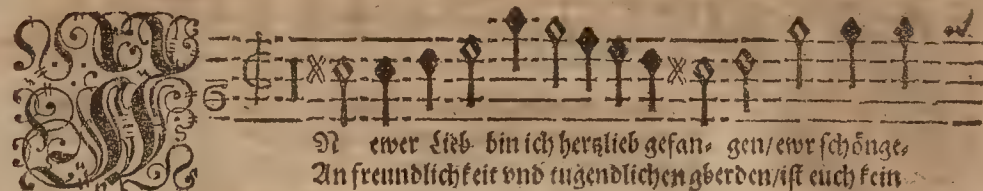 IN ewer Lieb bin ich hertzlieb gefan⸗ gen/ewr schönge⸗
An freundlichkeit vnd tugendlichen gberden/ist euch kein